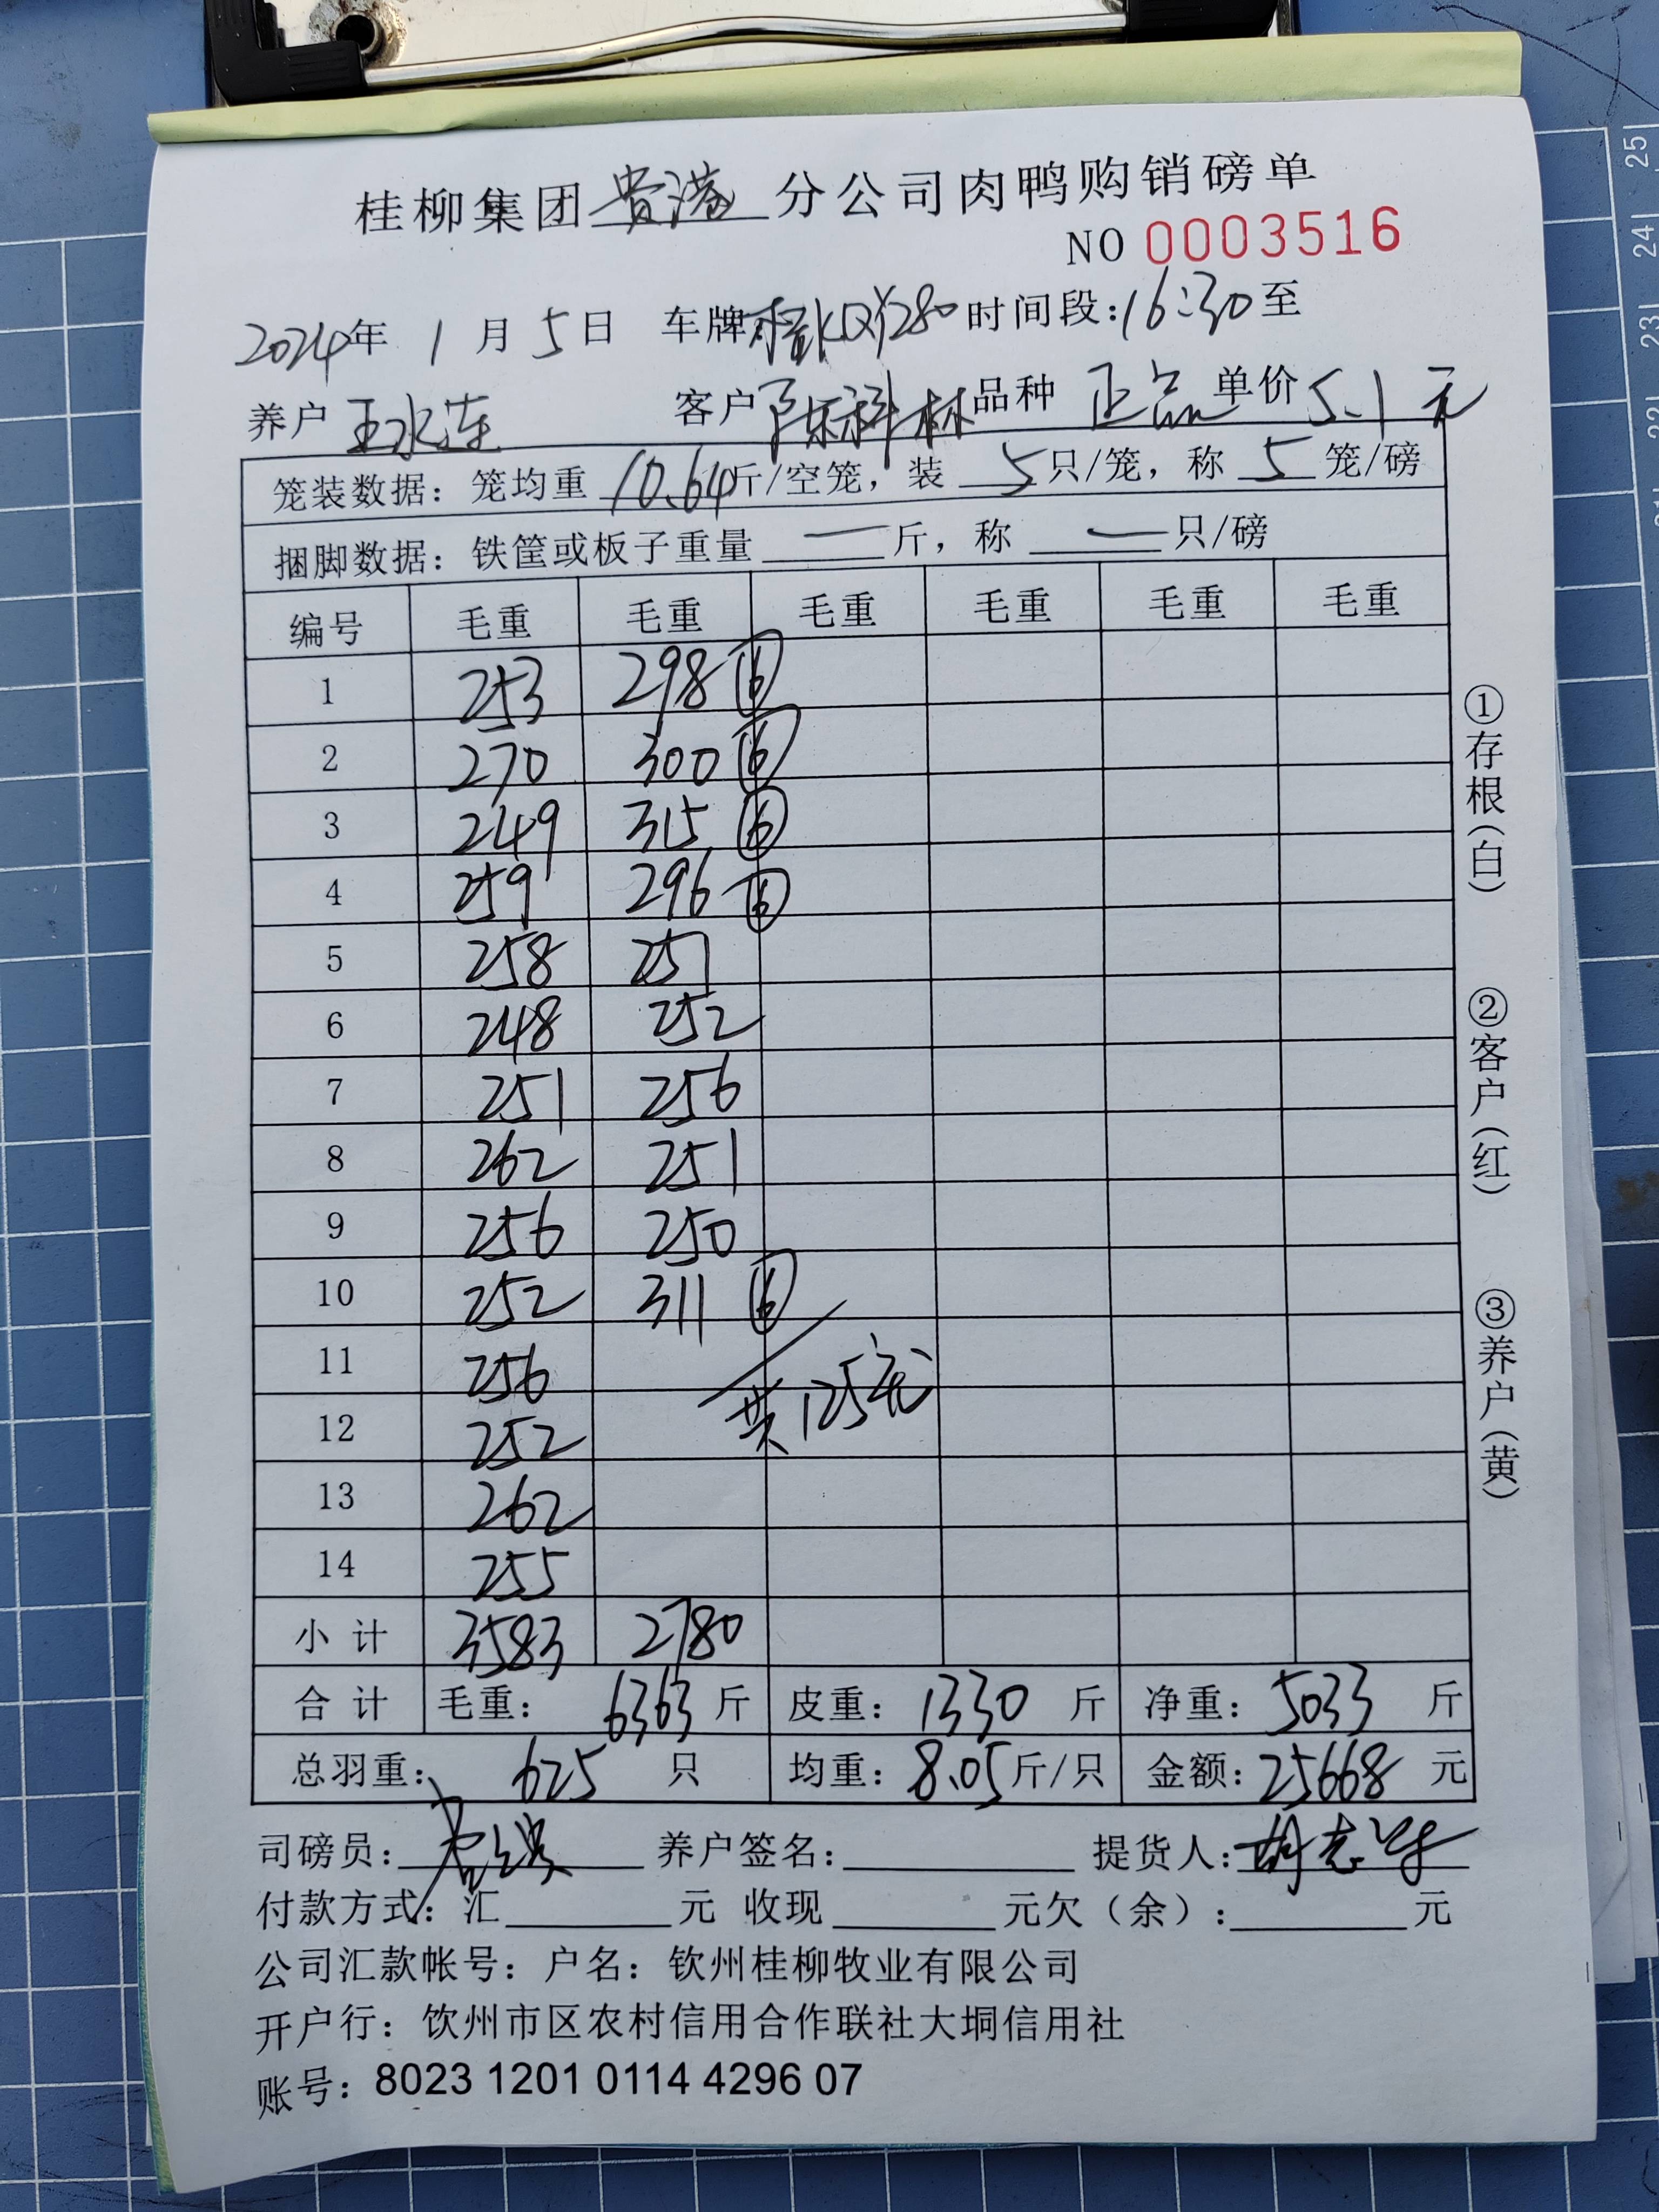 桂柳集团贵港分公司肉鸭购销磅单
NO 0003516
2024年 1月 5日 车牌桂KQY280时间段:16:30至
养户 王水连 客户 陈科林 品种 正品 单价 5.1元
笼装数据：笼均重 10.64斤/空笼，装 5只/笼，称 5 笼/磅
捆脚数据：铁筐或板子重量 — 斤，称 — 只/磅
编号 毛重 毛重 毛重 毛重 毛重 毛重
1 253 298 ⑥
2 270 300 ⑥
3 249 315 ⑥
4 259 296 ⑥
5 258 251
6 248 252
7 251 256
8 262 251
9 256 250
10 252 311 ⑥
11 256
共125笼
12 252
13 262
14 255
小 计 3583 2780
合 计 毛重： 6363 斤 皮重： 1330 斤 净重： 5033 斤
总羽重： 625 只 均重：8.05斤/只 金额：25668 元
司磅员： 养户签名： 提货人：胡志华
付款方式：汇 元 收现 元欠（余）： 元
公司汇款帐号：户名：钦州桂柳牧业有限公司
开户行：饮州市区农村信用合作联社大垌信用社
账号：8023 1201 0114 4296 07
①存根(白)
②客户(红)
③养户(黄)
25
24
23
22
21